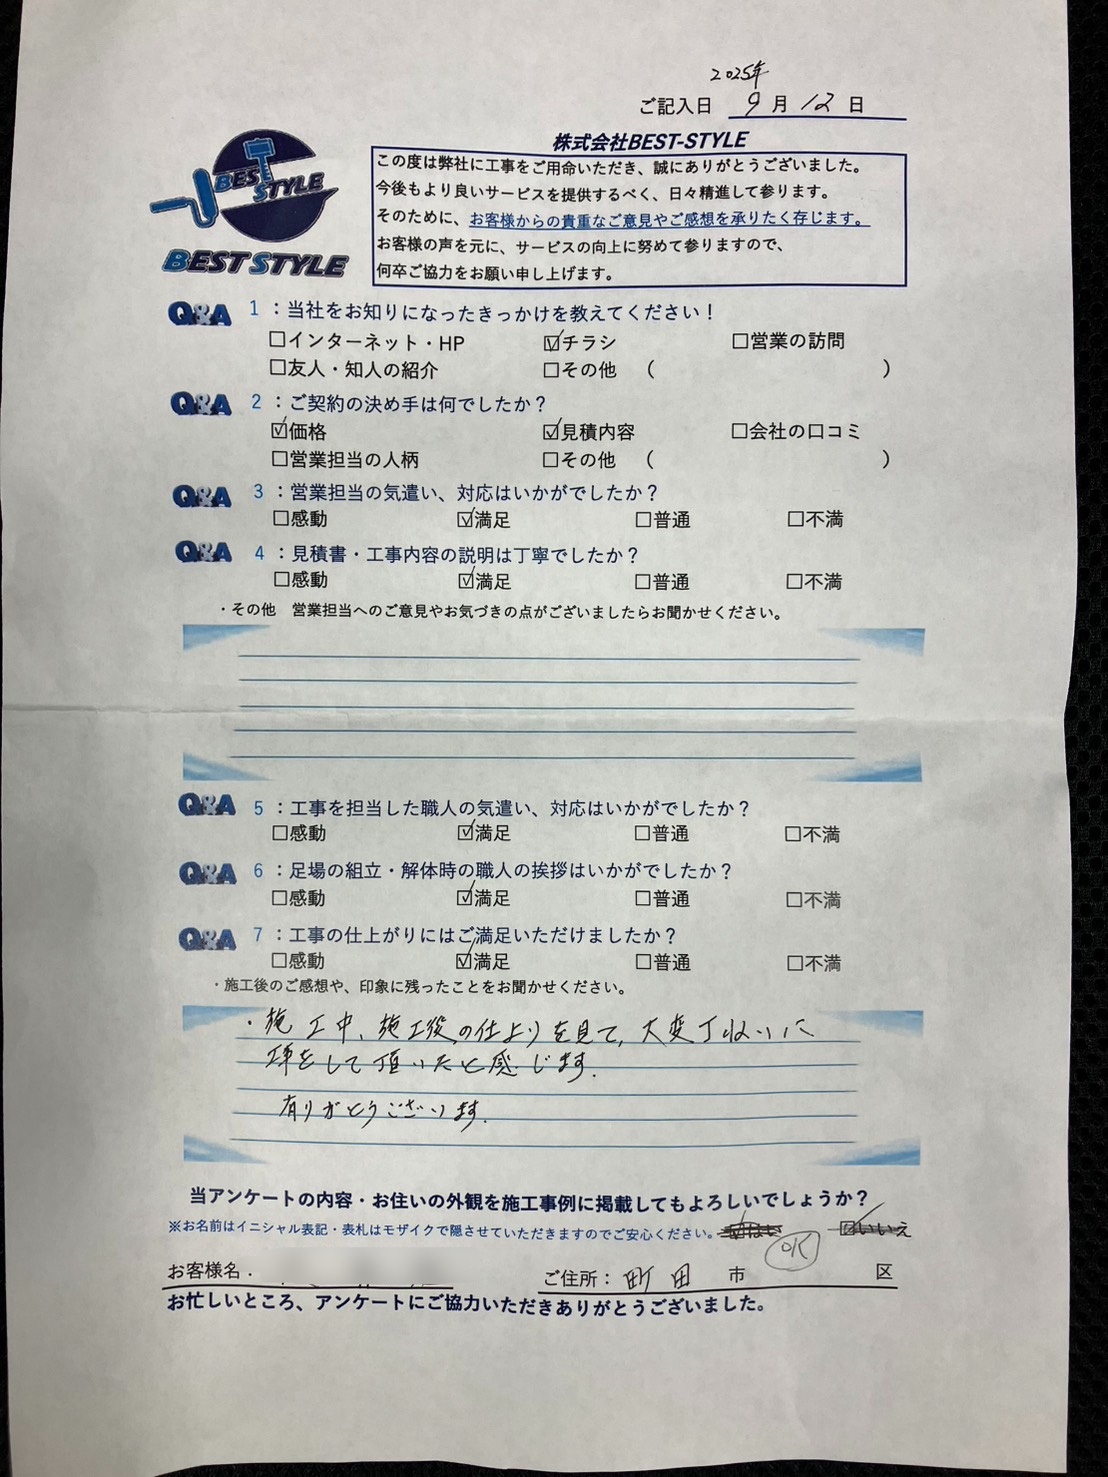 2025年
ご記入日 9月12日
株式会社BEST-STYLE
BEST STYLE
この度は弊社に工事をご用命いただき、誠にありがとうございました。
今後もより良いサービスを提供するべく、日々精進して参ります。
そのために、お客様からの貴重なご意見やご感想を承りたく存じます。
お客様の声を元に、サービスの向上に努めて参りますので、
何卒ご協力をお願い申し上げます。
BEST STYLE
Q&A 1：当社をお知りになったきっかけを教えてください！
□インターネット・HP ☑チラシ □営業の訪問
□友人・知人の紹介 □その他 （ ）
Q&A 2：ご契約の決め手は何でしたか？
☑価格 ☑見積内容 □会社の口コミ
□営業担当の人柄 □その他 （ ）
Q&A 3：営業担当の気遣い、対応はいかがでしたか？
□感動 ☑満足 □普通 □不満
Q&A 4：見積書・工事内容の説明は丁寧でしたか？
□感動 ☑満足 □普通 □不満
・その他 営業担当へのご意見やお気づきの点がございましたらお聞かせください。
Q&A 5：工事を担当した職人の気遣い、対応はいかがでしたか？
□感動 ☑満足 □普通 □不満
Q&A 6：足場の組立・解体時の職人の挨拶はいかがでしたか？
□感動 ☑満足 □普通 □不満
Q&A 7：工事の仕上がりにはご満足いただけましたか？
□感動 ☑満足 □普通 □不満
・施工後のご感想や、印象に残ったことをお聞かせください。
・施工中、施工後の仕上りを見て、大変丁ねいに
工事をして頂いたと感じます。
有りがとうございます。
当アンケートの内容・お住いの外観を施工事例に掲載してもよろしいでしょうか？
※お名前はイニシャル表記・表札はモザイクで隠させていただきますのでご安心ください。 ☑はい ☑いいえ
OK
お客様名． ご住所：町田 市 区
お忙しいところ、アンケートにご協力いただきありがとうございました。